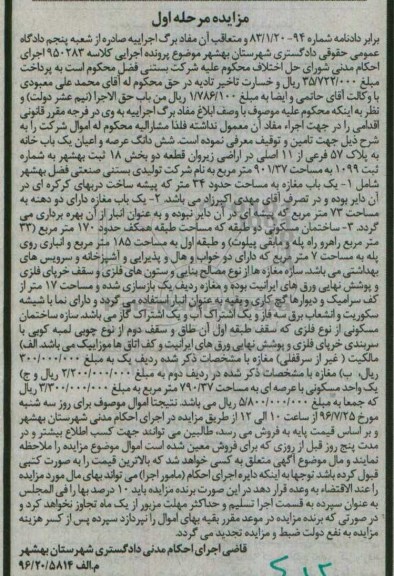 مزایده مرحله اول
برابر دادنامه شماره ۹۴-۸۳/۱/۲۰ و متعاقب آن مفاد برگ اجراییه صادره از شعبه پنجم دادگاه
عمومی حقوقی دادگستری شهرستان بهشهر موضوع پرونده اجرایی کلاسه ۹۵۰۲۸۳ اجرای
احکام مدنی شورای حل اختلاف محکوم علیه شرکت بستنی فضل محکوم است به پرداخت
مبلغ ۳۵/۷۲۲/۰۰۰ ریال و خسارت تاخیر تادیه در حق محکوم له آقای محمد علی معبودی
با وکالت آقای حاتمی و ایضا به مبلغ ۱/۷۸۶/۱۰۰ ریال من باب حق الاجرا (نیم عشر دولت) و
نظر به اینکه محکوم علیه موصوف با وصف ابلاغ مفاد برگ اجراییه به وی در فرجه مقرر قانونی
اقدامی را در جهت اجراء مفاد آن معمول نداشته فلذا مشارالیه محکوم له اموال شرکت را به
شرح ذیل جهت تامین و توقیف معرفی نموده است. شش دانگ عرصه و اعیان یک باب خانه
به پلاک ۵۷ فرعی از ۱۱ اصلی در اراضی زیروان قطعه دو بخش ۱۸ ثبت بهشهر به شماره
ثبت ۱۰۹۹ به مساحت ۹۰۱/۳۷ متر مربع به نام شرکت تولیدی بستنی صنعتی فضل بهشهر
شامل ۱- یک باب مغازه به مساحت حدود ۳۴ متر که پیشه ساخت دربهای کرکره ای در
آن دایر بوده و در تصرف آقای مهدی اکبرزاد می باشد. ۲- یک باب مغازه دارای دو دهنه به
مساحت ۷۳ متر مربع که پیشه ای در آن دایر نبوده و به عنوان انبار از آن بهره برداری می
گردد. ۳- ساختمان مسکونی دو طبقه که مساحت طبقه همکف حدود ۱۷۰ متر مربع (۳۳
متر مربع راهرو راه پله و مابقی پیلوت) و طبقه اول به مساحت ۱۸۵ متر مربع و انباری روی
پله به مساحت ۷ متر مربع که دارای دو خواب و هال و پذیرایی و آشپزخانه و سرویس های
بهداشتی می باشد. سازه مغازه ها از نوع مصالح بنایی و ستون های فلزی و سقف خرپای فلزی
و پوشش نهایی ورق های ایرانیت بوده و مغازه ردیف یک بازسازی شده و مساحت ۱۷ متر از
کف سرامیک و دیوارها گچ کاری و بقیه به عنوان انبار استفاده می گردد و دارای نما با شیشه
سکوریت و انشعاب برق سه فاز و یک اشتراک آب و یک اشتراک گاز می باشد. سازه ساختمان
مسکونی از نوع فلزی که سقف طبقه اول آن طاق و سقف دوم از نوع چوبی لمبه کوبی با
سربندی خرپای فلزی و پوشش نهایی ورق های ایرانیت و کف اتاق ها موزاییک می باشد. الف)
مالکیت ( غیر از سرقفلی) مغازه با مشخصات ذکر شده ردیف یک به مبلغ ۳۰۰/۰۰۰/۰۰۰
ریال، ب) مغازه با مشخصات ذکر شده در ردیف دوم به مبلغ ۲/۲۰۰/۰۰۰/۰۰۰ ریال و ج)
یک واحد مسکونی با عرصه ای به مساحت ۷۹۰/۳۷ متر مربع به مبلغ ۳/۳۰۰/۰۰۰/۰۰۰ ریال
که جمعا به مبلغ ۵/۸۰۰/۰۰۰/۰۰۰ ریال می باشد. نتیجتا اموال موصوف برای روز سه شنبه
مورخ ۹۶/۷/۲۵ از ساعت ۱۰ الی ۱۲ از طریق مزایده در اجرای احکام مدنی شهرستان بهشهر
و بر اساس قیمت پایه به فروش می رسد. طالبین می توانند جهت کسب اطلاع بیشتر و در
مدت پنج روز قبل از روزی که برای فروش معین شده است اموال موضوع مزایده را ملاحظه
نمایند و مال موضوع آگهی متعلق به کسی خواهد شد که بالاترین قیمت را به صورت کتبی
قبول کرده باشد توجها به اینکه دایره اجرای احکام (مامور اجرا) می تواند بهای مال مورد مزایده
را عند الاقتضاء به وعده قرار دهد در این صورت برنده مزایده باید ۱۰ درصد بها را فی المجلس
به عنوان سپرده به قسمت اجرا تسلیم و حداکثر مهلت مزبور از یک ماه تجاوز نخواهد کرد و
در صورتی که برنده مزایده در موعد مقرر بقیه بهای اموال را نپردازد سپرده پس از کسر هزینه
مزایده به نفع دولت ضبط و مزایده تجدید می گردد.
قاضی اجرای احکام مدنی دادگستری شهرستان بهشهر
م.الف ۹۶/۲۰/۵۸۱۴